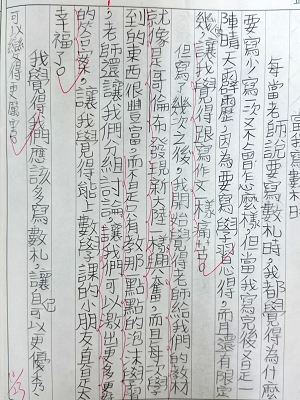 寫數札
每當老師說要寫數札時,我都學得為什麼
要寫少寫一次又不會怎麼樣,但當我寫完後又是一
陣晴天霹靂,因為要寫學習心得,而且還有限定
幾,讓我覺得跟寫作文一樣痛苦。
但寫了幾次之後,我開始覺得老師給我們的教材
就像是哥倫布發現新大陸一樣興奮,而且每次學
到的東西很豐富,而不是只有教那一點點的泡沫學習
,老師還讓我們分組討論,讓我們可以激出更多更
的答案,讓我學得能上數學課的小朋友真是太
幸福了。
我覺得我們應該多寫數札,讓自己可以更優秀,
可以變得更厲害。